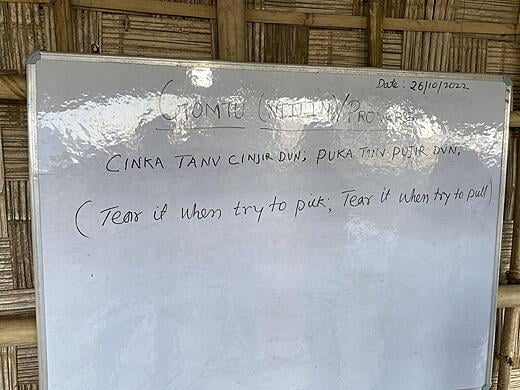 Date: 26/10/2022
GOMTU (NIJIN)/PROVARB
CINKA TANV CINJIR DVN; PUKA TANV PUJIR DVN,
(Tear it when try to pick; Tear it when try to pull)